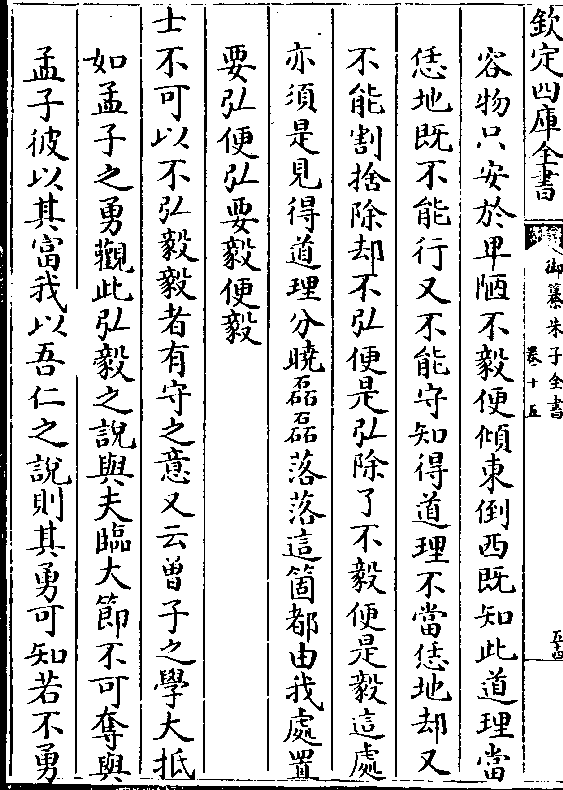 欽定四庫全書
御纂朱子全書
卷十五
五十四
容物只安於卑陋不毅便傾東倒西既知此道理當
恁地既不能行又不能守知得道理不當恁地却又
不能割捨除却不弘便是弘除了不毅便是毅這處
亦須是見得道理分曉磊磊落落這箇都由我處置
要弘便弘要毅便毅
士不可以不弘毅毅者有守之意又云曾子之學大抵
如孟子之勇觀此弘毅之說與夫臨大節不可奪與
孟子彼以其富我以吾仁之說則其勇可知若不勇